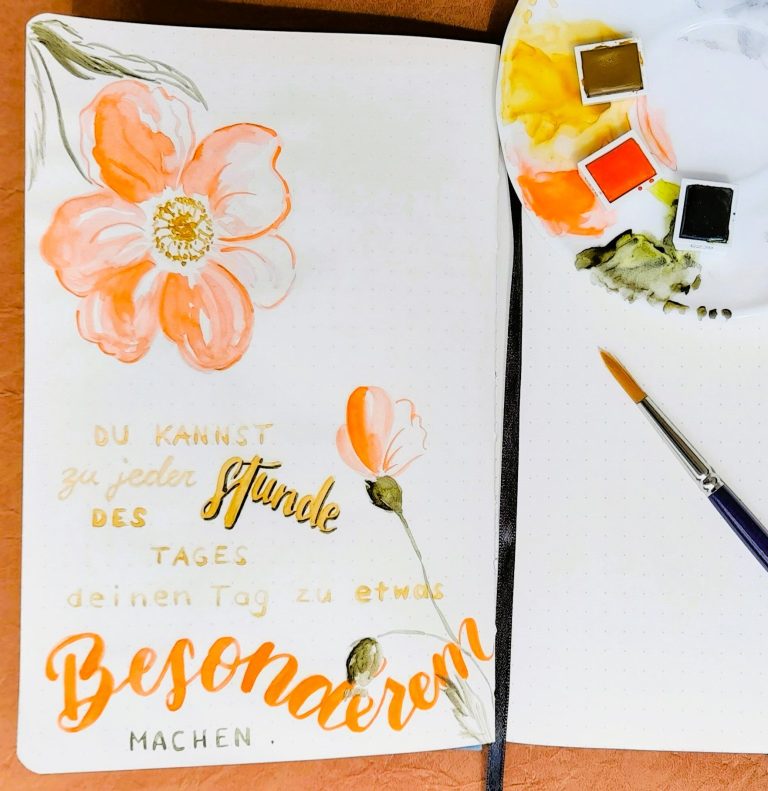 DU KANNST
zu jeder Stunde
DES
TAGES
deinen Tag zu etwas
Besonderem
MACHEN.